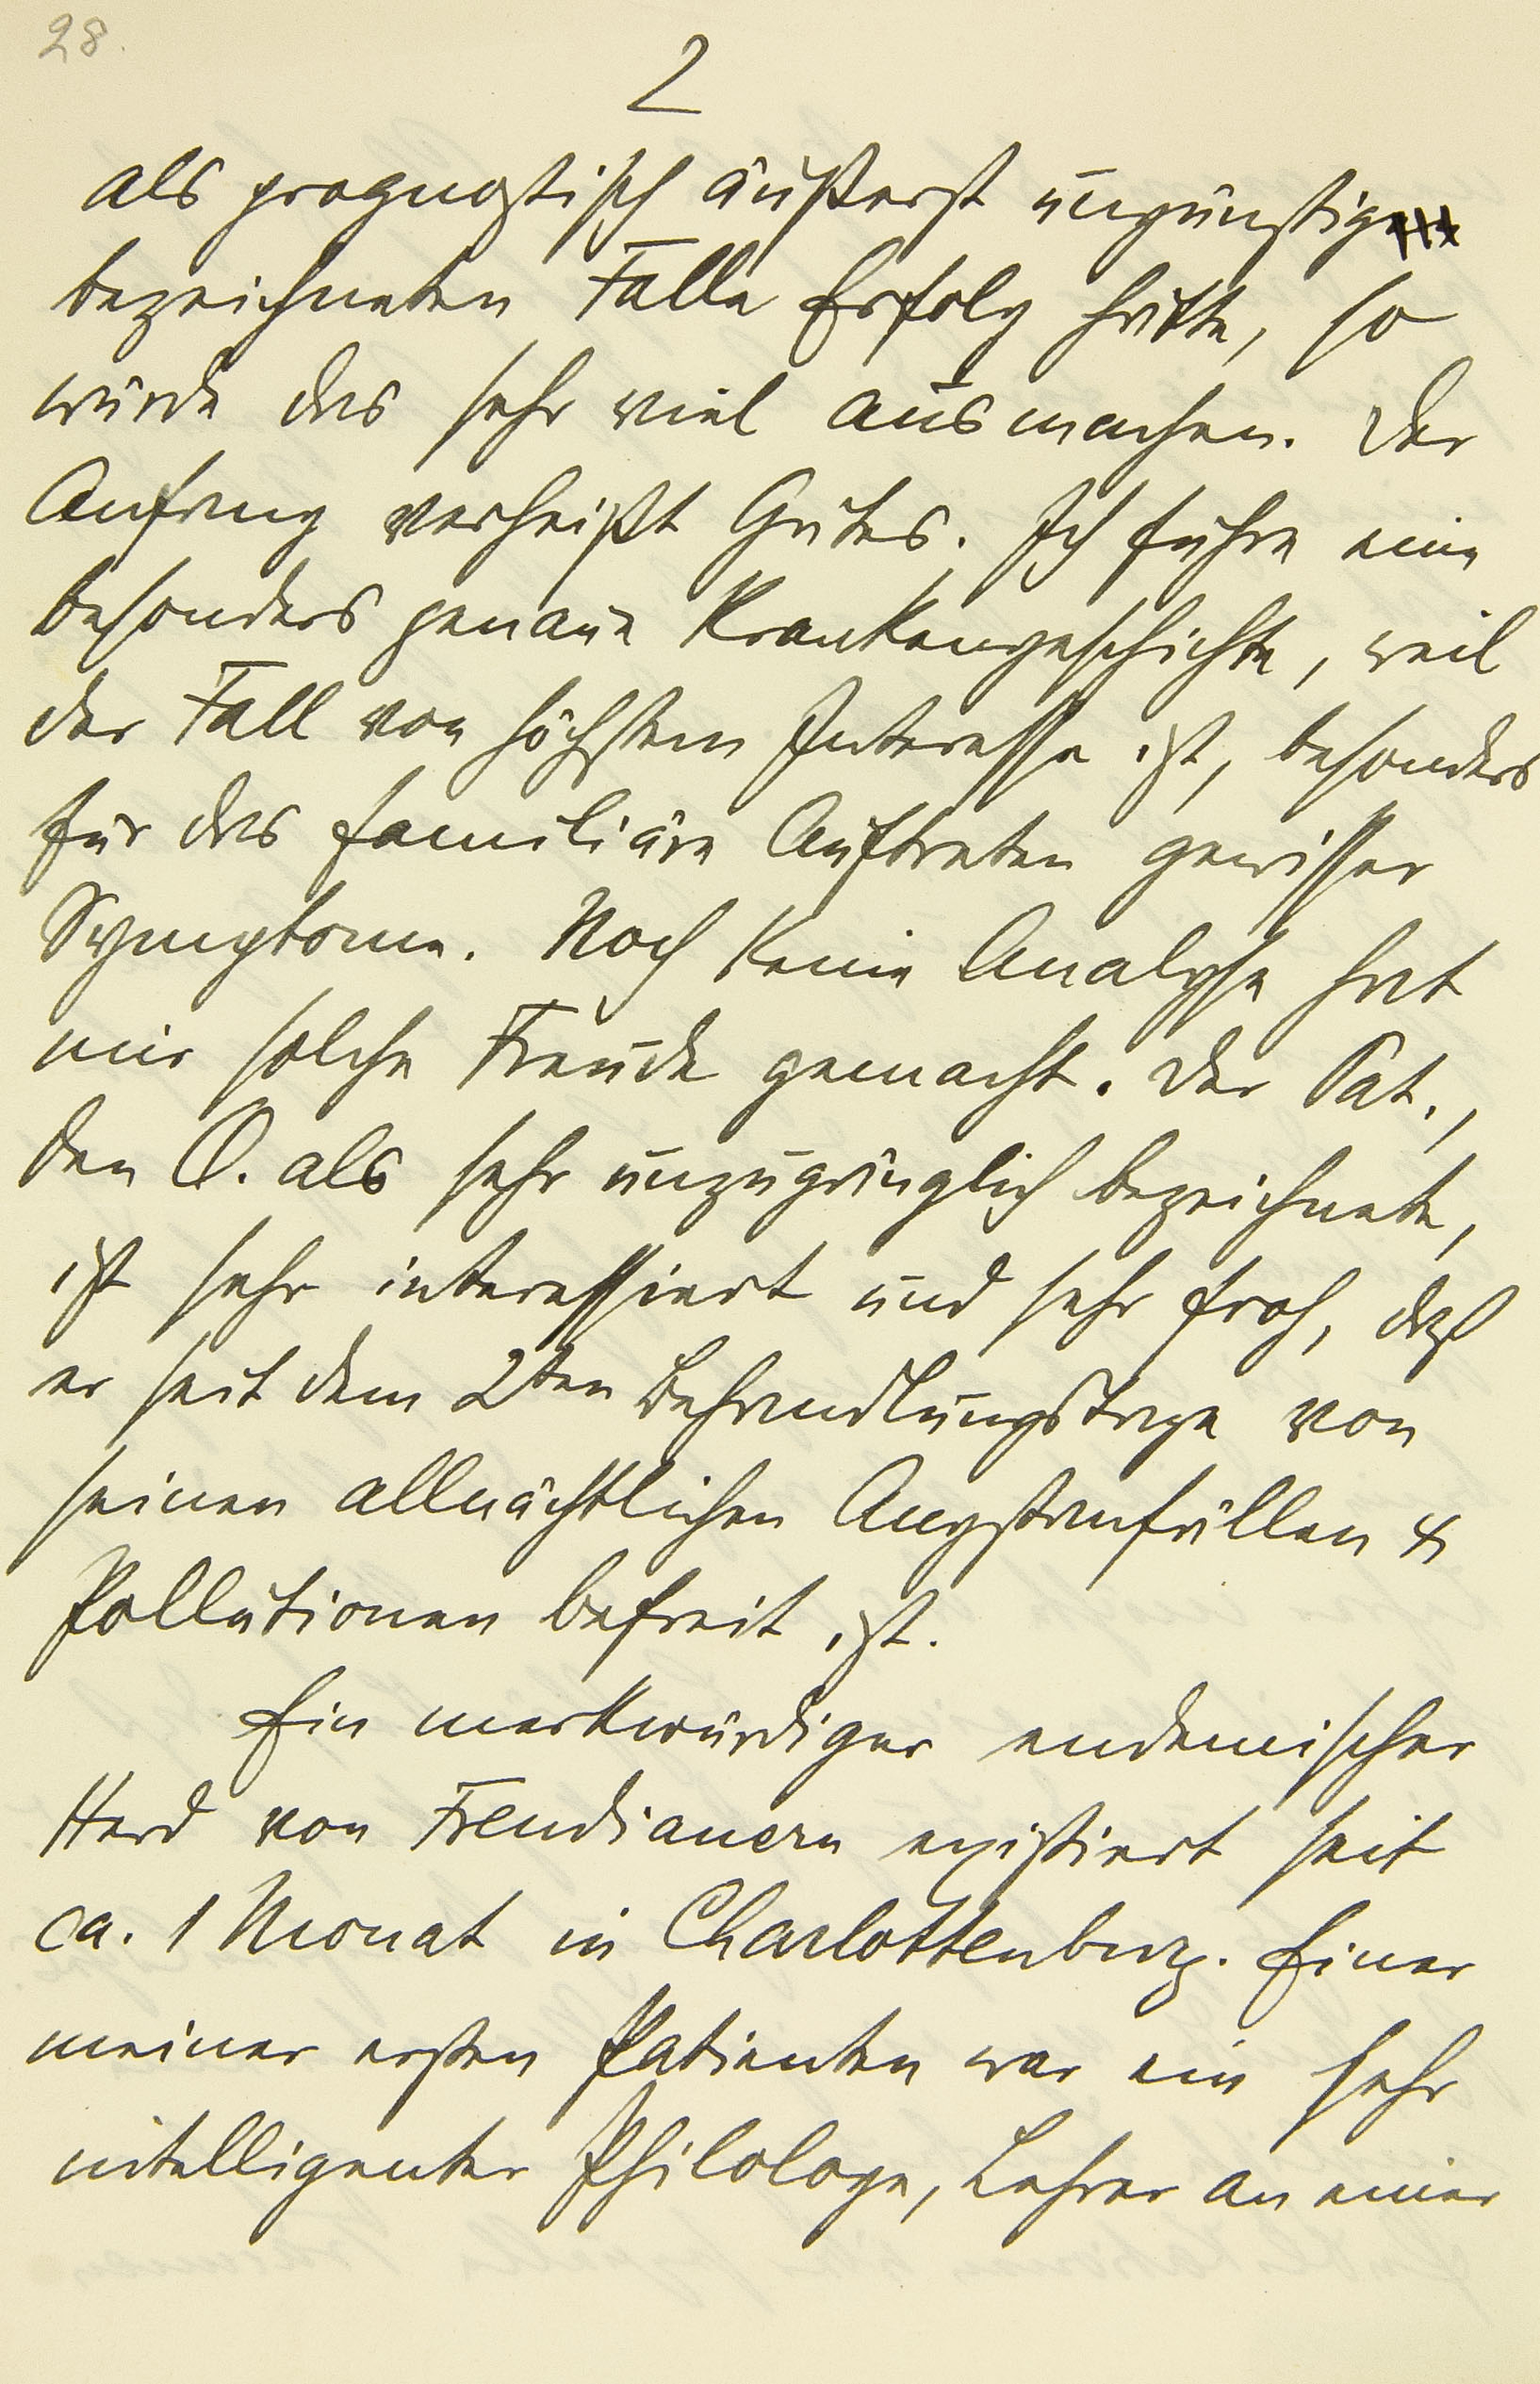 28.
2
als prognostisch äußerst ungünstig
bezeichneten Falle Erfolg hätte, so
würde das sehr viel ausmachen. Der
Anfang verheißt Gutes. Ich führe eine
besonders genaue Krankengeschichte, weil
der Fall von höchstem Interesse ist, besonders
für das familiäre Auftreten gewisser
Symptome. Noch keine Analyse hat
mir solche Freude gemacht. Der Pat.,
den O. als sehr unzugänglich bezeichnete,
ist sehr interessiert und sehr froh, daß
er seit dem 2ten Behandlungstage von
seinen allnächtlichen Angstanfällen &
Pollutionen befreit ist.
Ein merkwürdiger endemischer
Herd von Freudianern existiert seit
ca. 1 Monat in Charlottenburg. Einer
meiner ersten Patienten war ein sehr
intelligenter Philologe, Lehrer an einer